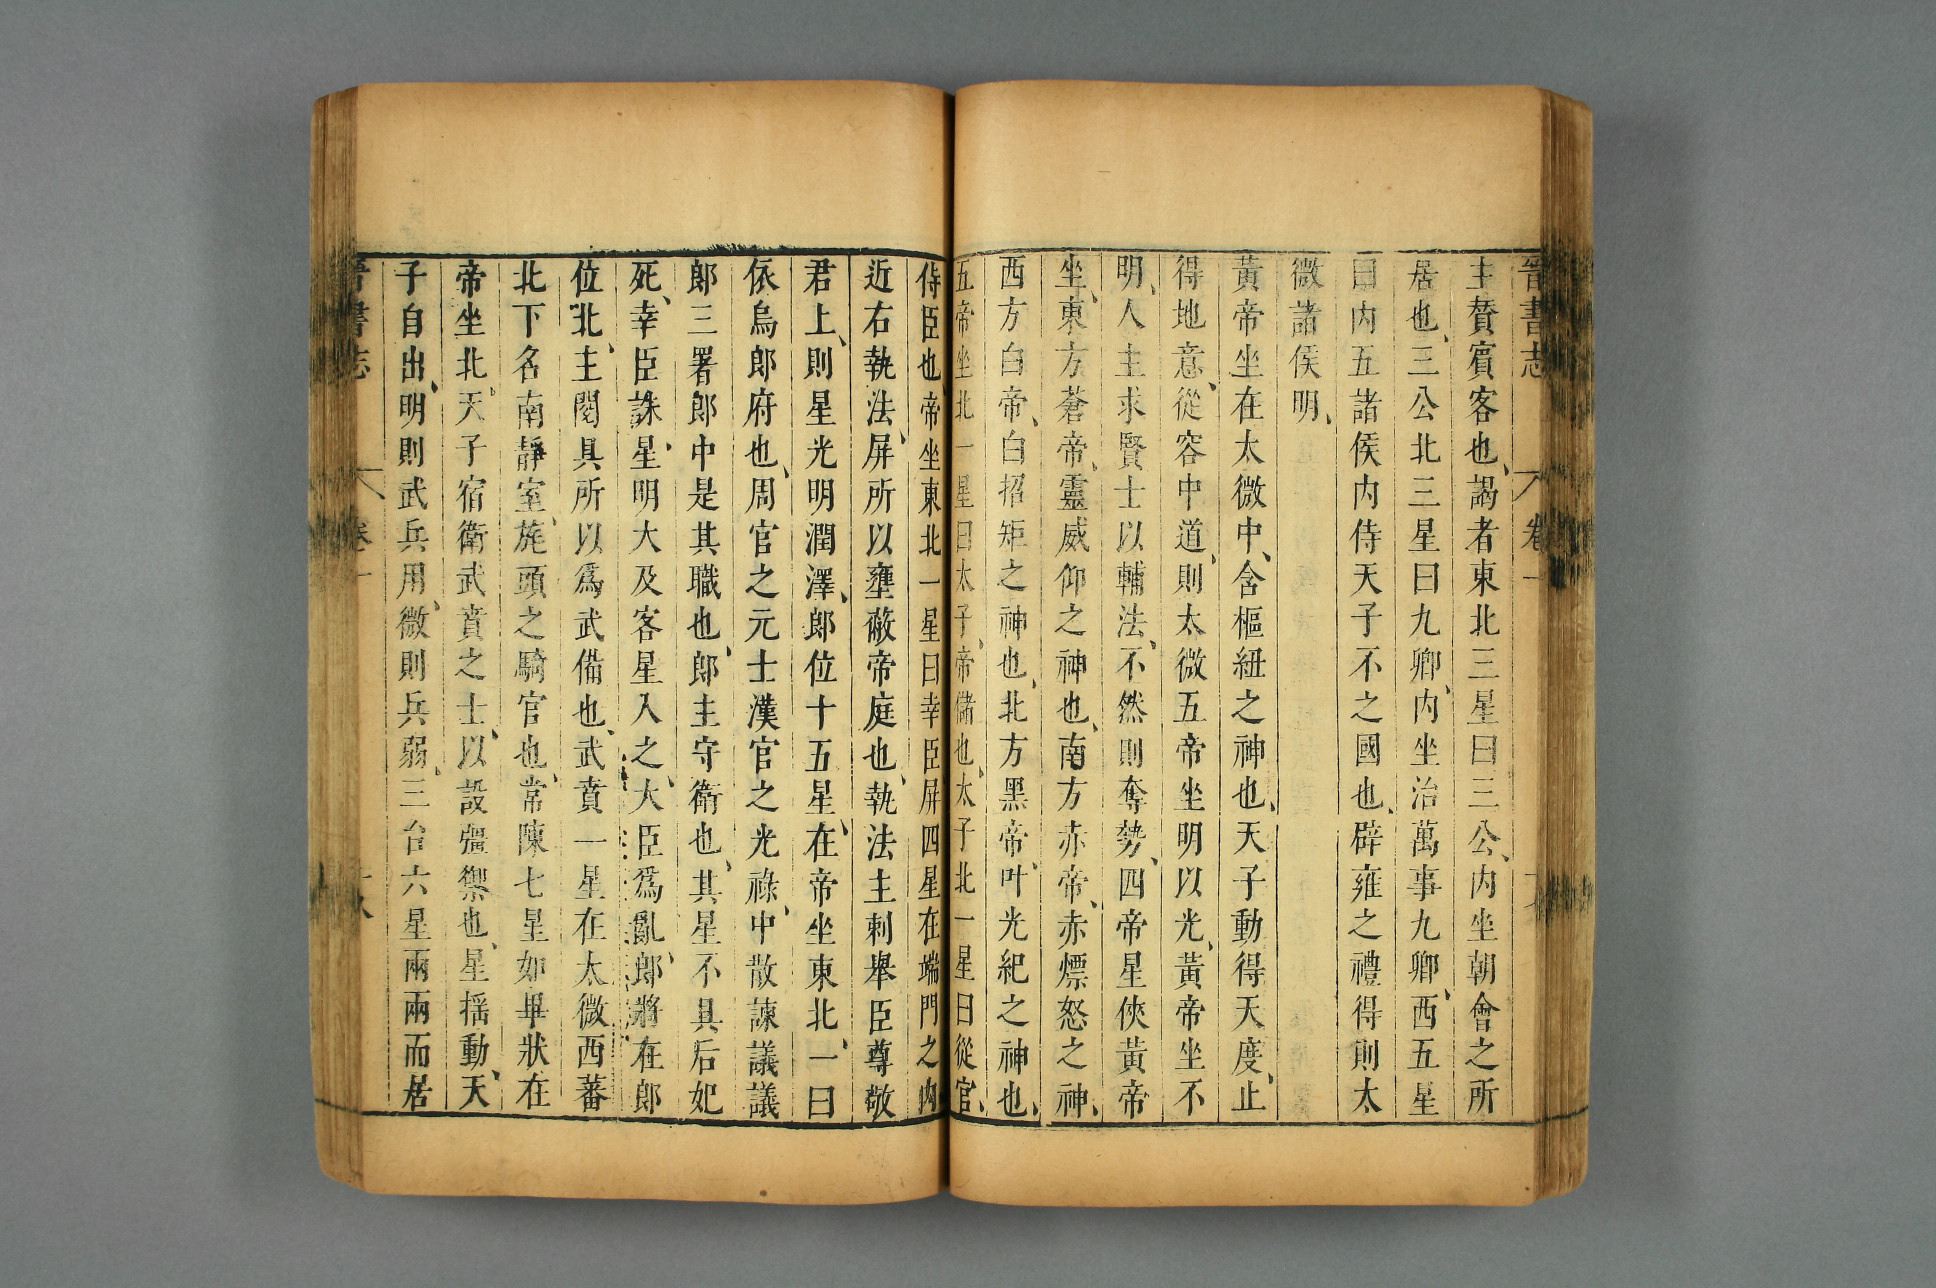 晉書志 卷一
主贊賓客也、謁者東北三星曰三公、內坐朝會之所
居也、三公北三星曰九卿、內坐治萬事九卿、西五星
曰內五諸侯內侍天子不之國也、辟雍之禮得則太
微諸侯明、
黃帝坐在太微中、含樞紐之神也、天子動得天度、止
得地意、從容中道、則太微五帝坐明以光、黃帝坐不
明、人主求賢士以輔法、不然則奪勢、四帝星俠黃帝
坐、東方蒼帝、靈威仰之神也、南方赤帝、赤熛怒之神、
西方白帝、白招矩之神也、北方黑帝、叶光紀之神也、
五帝坐北一星曰太子、帝儲也、太子北一星曰從官、
侍臣也、帝坐東北一星曰幸臣屏四星在端門之內
近右執法、屏所以壅蔽帝庭也、執法主刺舉臣尊敬
君上、則星光明潤澤、郎位十五星、在帝坐東北、一曰
依烏郎府也、周官之元士漢官之光祿、中散諫議議
郎三署郎中是其職也、郎主守衛也、其星不具后妃
死、幸臣誅、星明大及客星入之、大臣爲亂、郎將在郎
位北、主閱具所以爲武備也、武賁一星在太微西蕃
北下名南靜室、旄頭之騎官也、常陳七星如畢狀在
帝坐北、天子宿衛武賁之士、以設彊禦也、星搖動、天
子自出、明則武兵用、微則兵弱、三台六星兩兩而居
晉書志 卷一